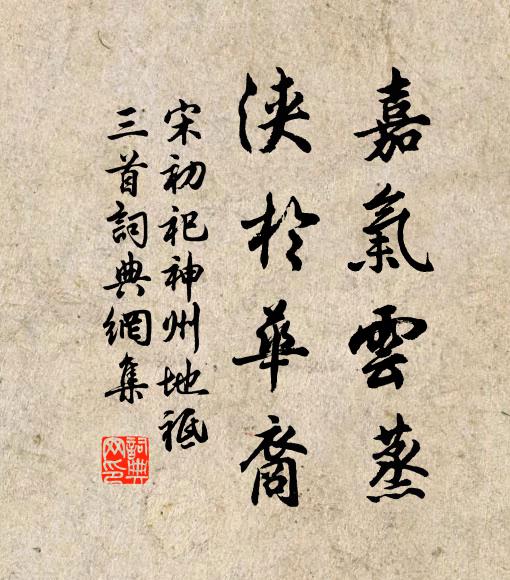 嘉氣雲蒸
浹於華裔
宋初祀神州地祗
三首詞典網集
詞典网印